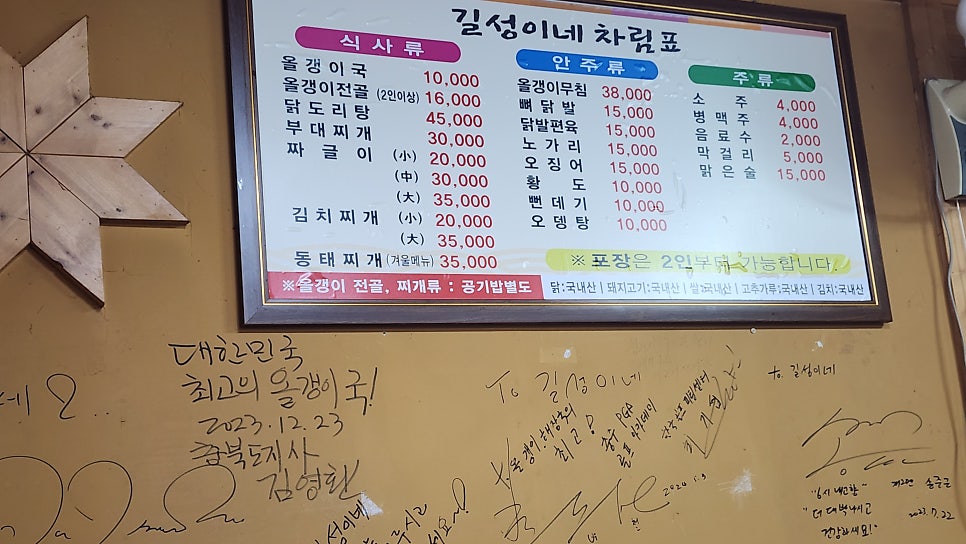 길성이네 차림표
식사류
올갱이국 10,000
올갱이전골 (2인이상) 16,000
닭도리탕 45,000
부대찌개 30,000
짜글이 (小) 20,000
(中) 30,000
(大) 35,000
김치찌개 (小) 20,000
(大) 35,000
동태찌개 (겨울메뉴) 35,000
안주류
올갱이무침 38,000
뼈닭발 15,000
닭발편육 15,000
노가리 15,000
오징어 15,000
황도 10,000
뻔데기 10,000
오뎅탕 10,000
주류
소주 4,000
병맥주 4,000
음료수 2,000
막걸리 5,000
맑은술 15,000
※ 포장은 2인부터 가능합니다.
※올갱이 전골, 찌개류 : 공기밥별도
닭:국내산 | 돼지고기:국내산 | 쌀:국내산 | 고추가루:국내산 | 김치:국내산
대한민국
최고의 올갱이국!
2023.12.23
충북도지사
김영환
To 길성이네
올갱이 해장국의
최고!
충주 PGA
골프 아카데미
2024.1.9
to. 길성이네
"6시 내고향"
"더 대박나시고
건강하세요!"
2023.7.22